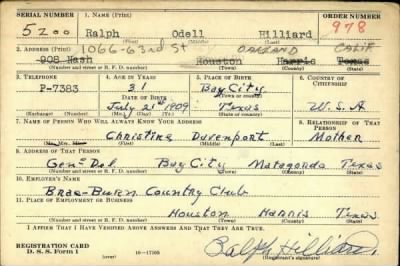 SERIAL NUMBER 1. NAME (Print) ORDER NUMBER
5200 Ralph Odell Hilliard 978
(First) (Middle) (Last)
2. ADDRESS (Print) 1066-63rd St OAKLAND CALIF.
908 Nash Houston Harris Texas
(Number and street or R. F. D. number) (Town) (County) (State)
3. TELEPHONE 4. AGE IN YEARS 5. PLACE OF BIRTH 6. COUNTRY OF CITIZENSHIP
P-7383 31 Bay City
DATE OF BIRTH (Town or county)
July 21st 1909 Texas U.S.A
(Exchange) (Number) (Mo.) (Day) (Yr.) (State or country)
7. NAME OF PERSON WHO WILL ALWAYS KNOW YOUR ADDRESS 8. RELATIONSHIP OF THAT PERSON
Christine Davenport Mother
(Mr., Mrs., Miss) (First) (Middle) (Last)
9. ADDRESS OF THAT PERSON
Genl Del Bay City Matagorda Texas
(Number and street or R. F. D. number) (Town) (County) (State)
10. EMPLOYER'S NAME
Brae-Burn Country Club
11. PLACE OF EMPLOYMENT OR BUSINESS
Houston Harris Texas
(Number and street or R. F. D. number) (Town) (County) (State)
I AFFIRM THAT I HAVE VERIFIED ABOVE ANSWERS AND THAT THEY ARE TRUE.
REGISTRATION CARD
D. S. S. Form 1 16—17105 Ralph Hilliard
(Registrant's signature)